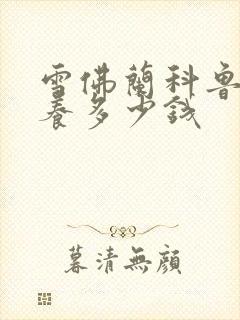 雪佛蘭科魯
養多少錢
暮清無顔